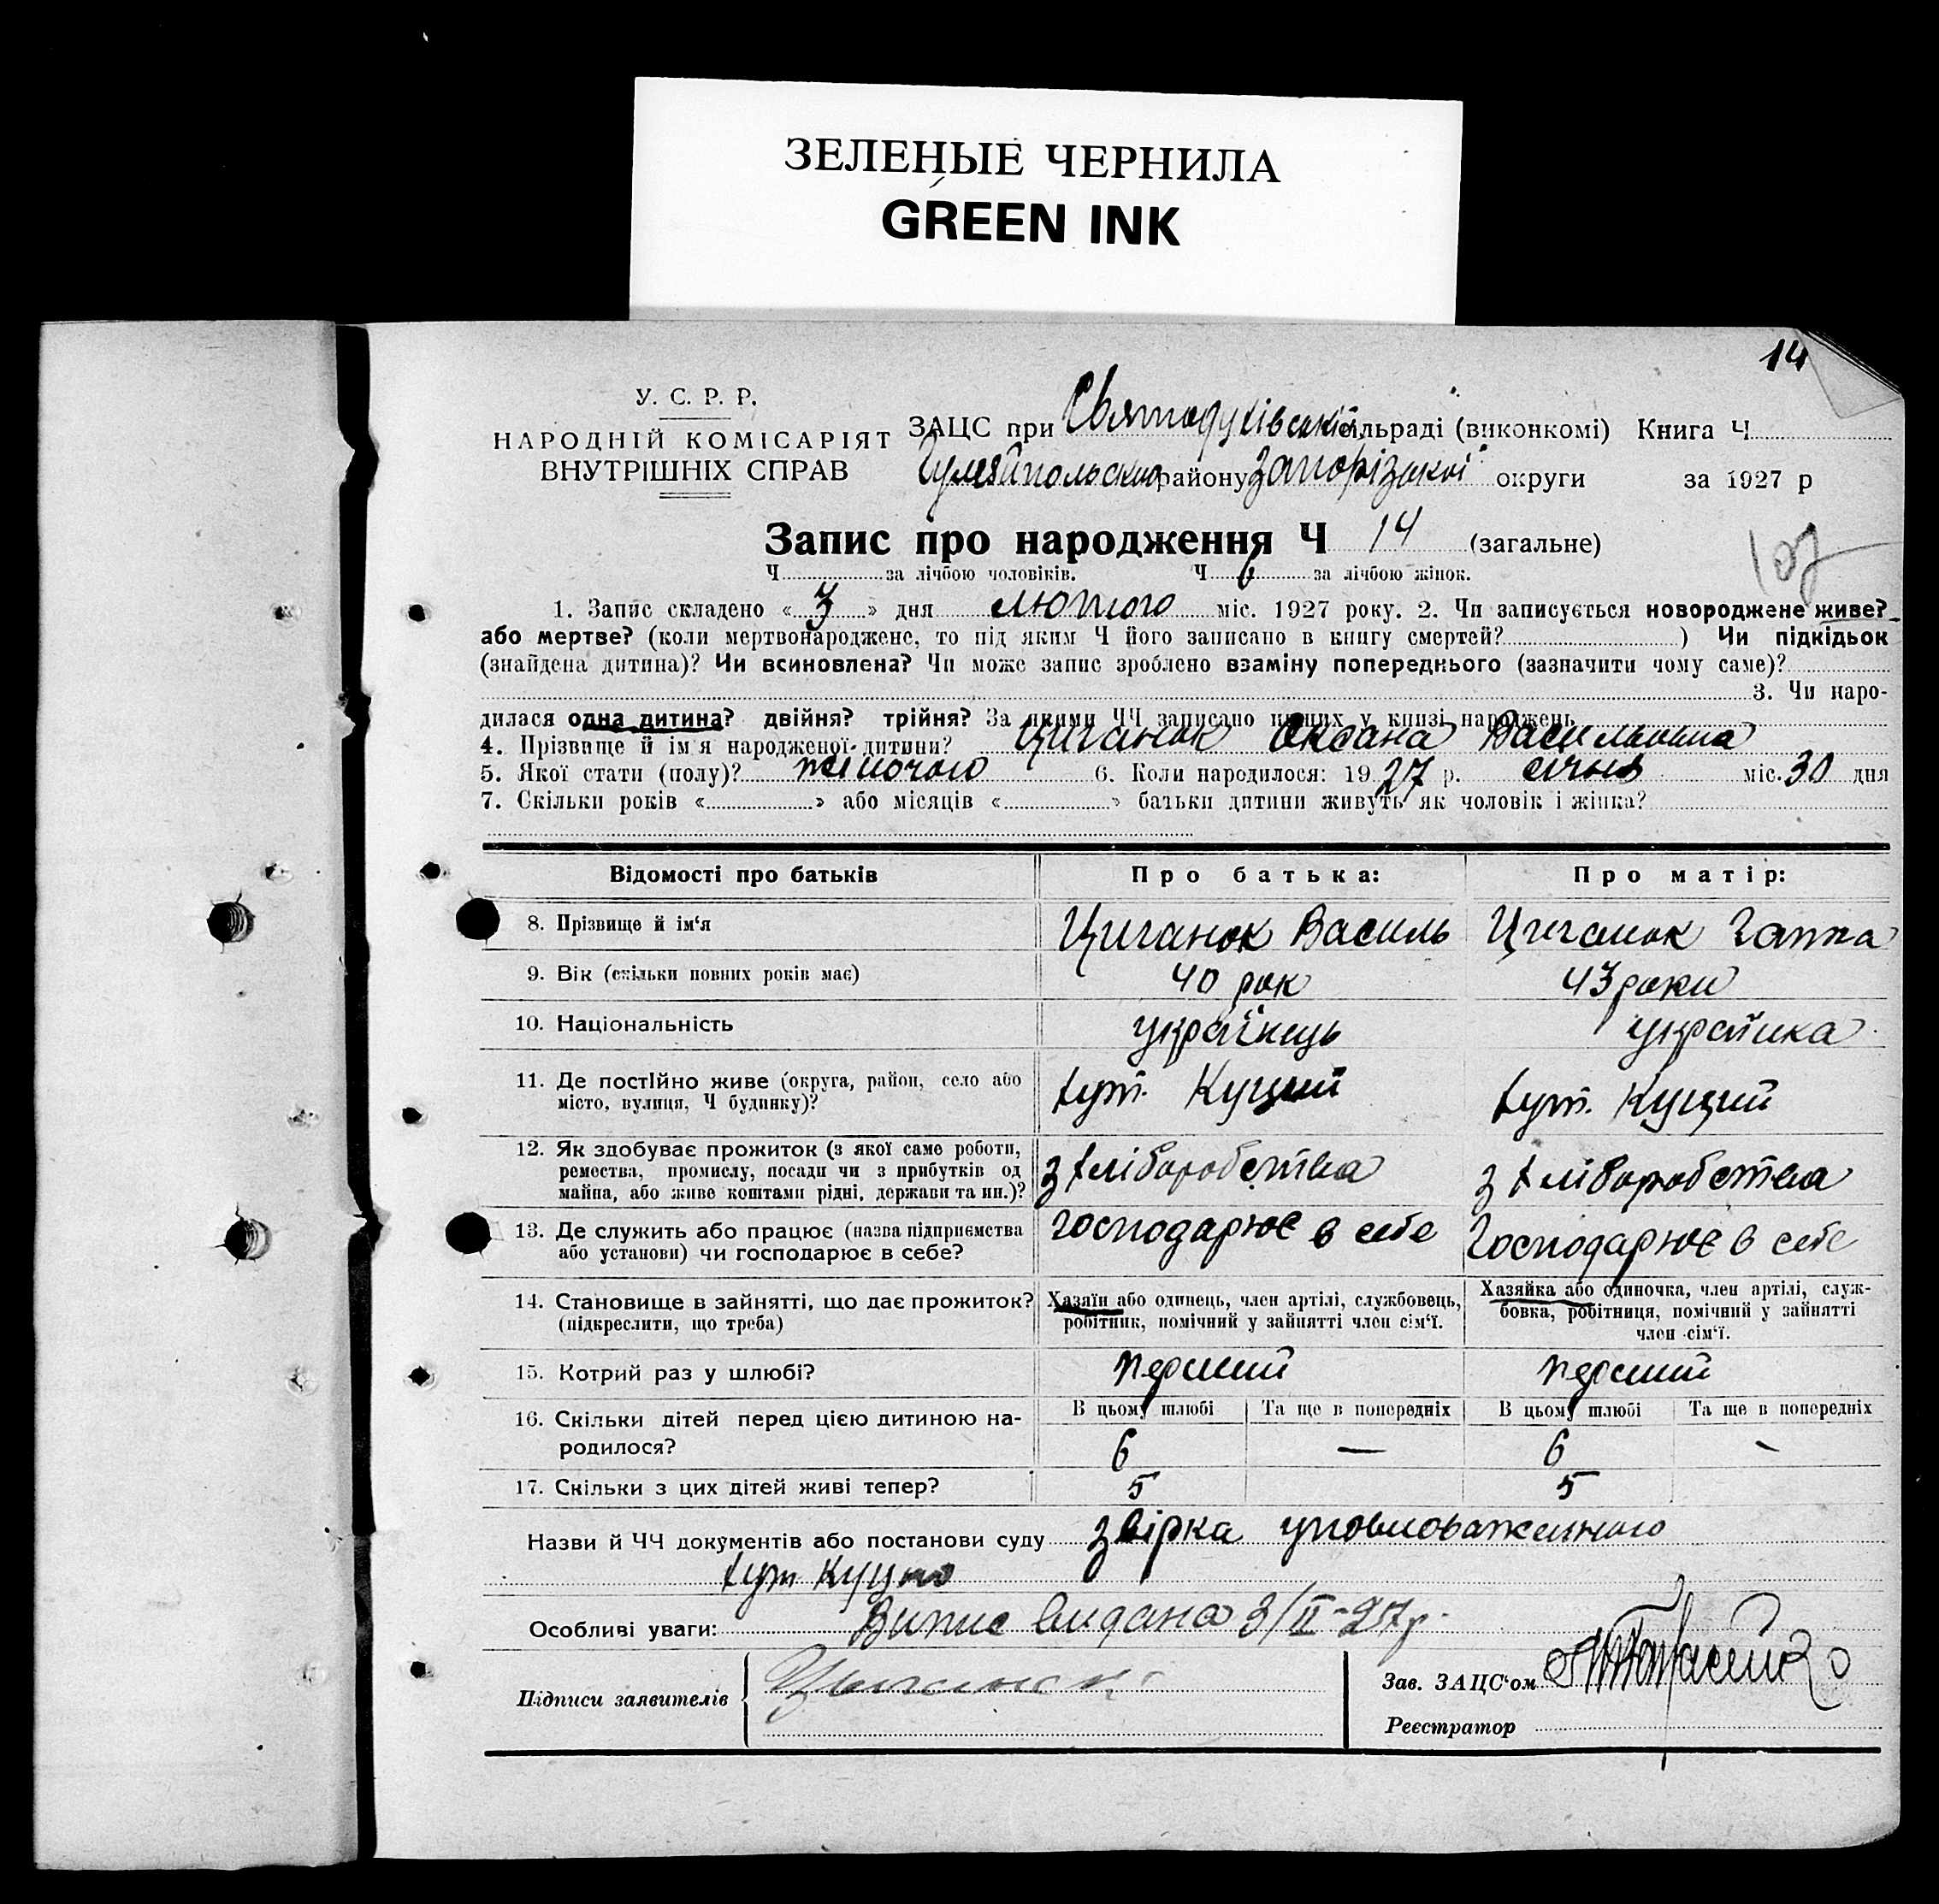 ЗЕЛЕНЫЕ ЧЕРНИЛА
GREEN INK
14
У. С. Р. Р.
НАРОДНІЙ КОМІСАРІЯТ
ВНУТРІШНІХ СПРАВ
ЗАЦС при Святодухівській сільраді (виконкомі) Книга Ч
Гуляйпольского району Запорізької округи за 1927 р
Запис про народження Ч 14 (загальне)
107
Ч за лічбою чоловіків. Ч 6 за лічбою жінок.
1. Запис складено «3» дня лютого міс. 1927 року. 2. Чи записується новороджене живе?
або мертве? (коли мертвонароджене, то під яким Ч його записано в книгу смертей? ) Чи підкідьок
(знайдена дитина)? Чи всиновлена? Чи може запис зроблено взаміну попереднього (зазначити чому саме)?
3. Чи наро-
дилася одна дитина? двійня? трійня? За якими ЧЧ записано інших у книзі народжень
4. Прізвище й ім'я народженої дитини? Циганок Оксана Васильовна
5. Якої стати (полу)? жіночого 6. Коли народилося: 1927 р. січня міс. 30 дня
7. Скільки років « » або місяців « » батьки дитини живуть як чоловік і жінка?
Відомості про батьків Про батька: Про матір:
8. Прізвище й ім'я Циганок Василь Циганок Гапка
9. Вік (скільки повних років має) 40 рок 43 роки
10. Національність українець украінка
11. Де постійно живе (округа, район, село або
місто, вулиця, Ч будинку)? хут. Куций хут. Куций
12. Як здобуває прожиток (з якої саме роботи,
ремества, промислу, посади чи з прибутків од
майна, або живе коштами рідні, держави та ин.)? з хліборобства з хліборобства
13. Де служить або працює (назва підприємства
або установи) чи господарює в себе? господарює в себе Господарює в себе
14. Становище в зайнятті, що дає прожиток?
(підкреслити, що треба)
Хазяїн або одинець, член артілі, службовець,
робітник, помічний у зайнятті член сім'ї.
Хазяйка або одиночка, член артілі, служ-
бовка, робітниця, помічний у зайнятті
член сім'ї.
15. Котрий раз у шлюбі? перший перший
16. Скільки дітей перед цією дитиною на-
родилося?
В цьому шлюбі Та ще в попередніх В цьому шлюбі Та ще в попередніх
6 — 6 -
17. Скільки з цих дітей живі тепер? 5 5
Назви й ЧЧ документів або постанови суду звірка уповноваженого
хут Куцого
Особливі уваги: Випис видана 3/II-27р.
Підписи заявителів Цыганок
Зав. ЗАЦС'ом
Реєстратор